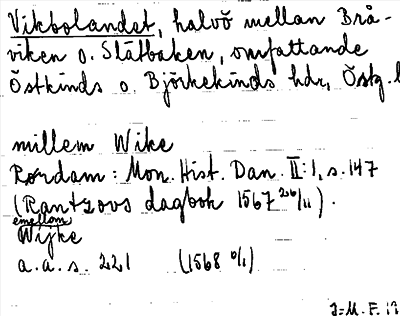 Vikbolandet, halvö mellan Brå-
viken o. Slätbaken, omfattande
Östkinds o. Björkekinds hdr, Östg.l
millem Wike
Rørdam: Mon. Hist. Dan. II:1, s. 147
(Rantzovs dagbok 1567 20/11).
emellom
Wijke
a.a. s. 221 (1568 /1)
J=M. F.